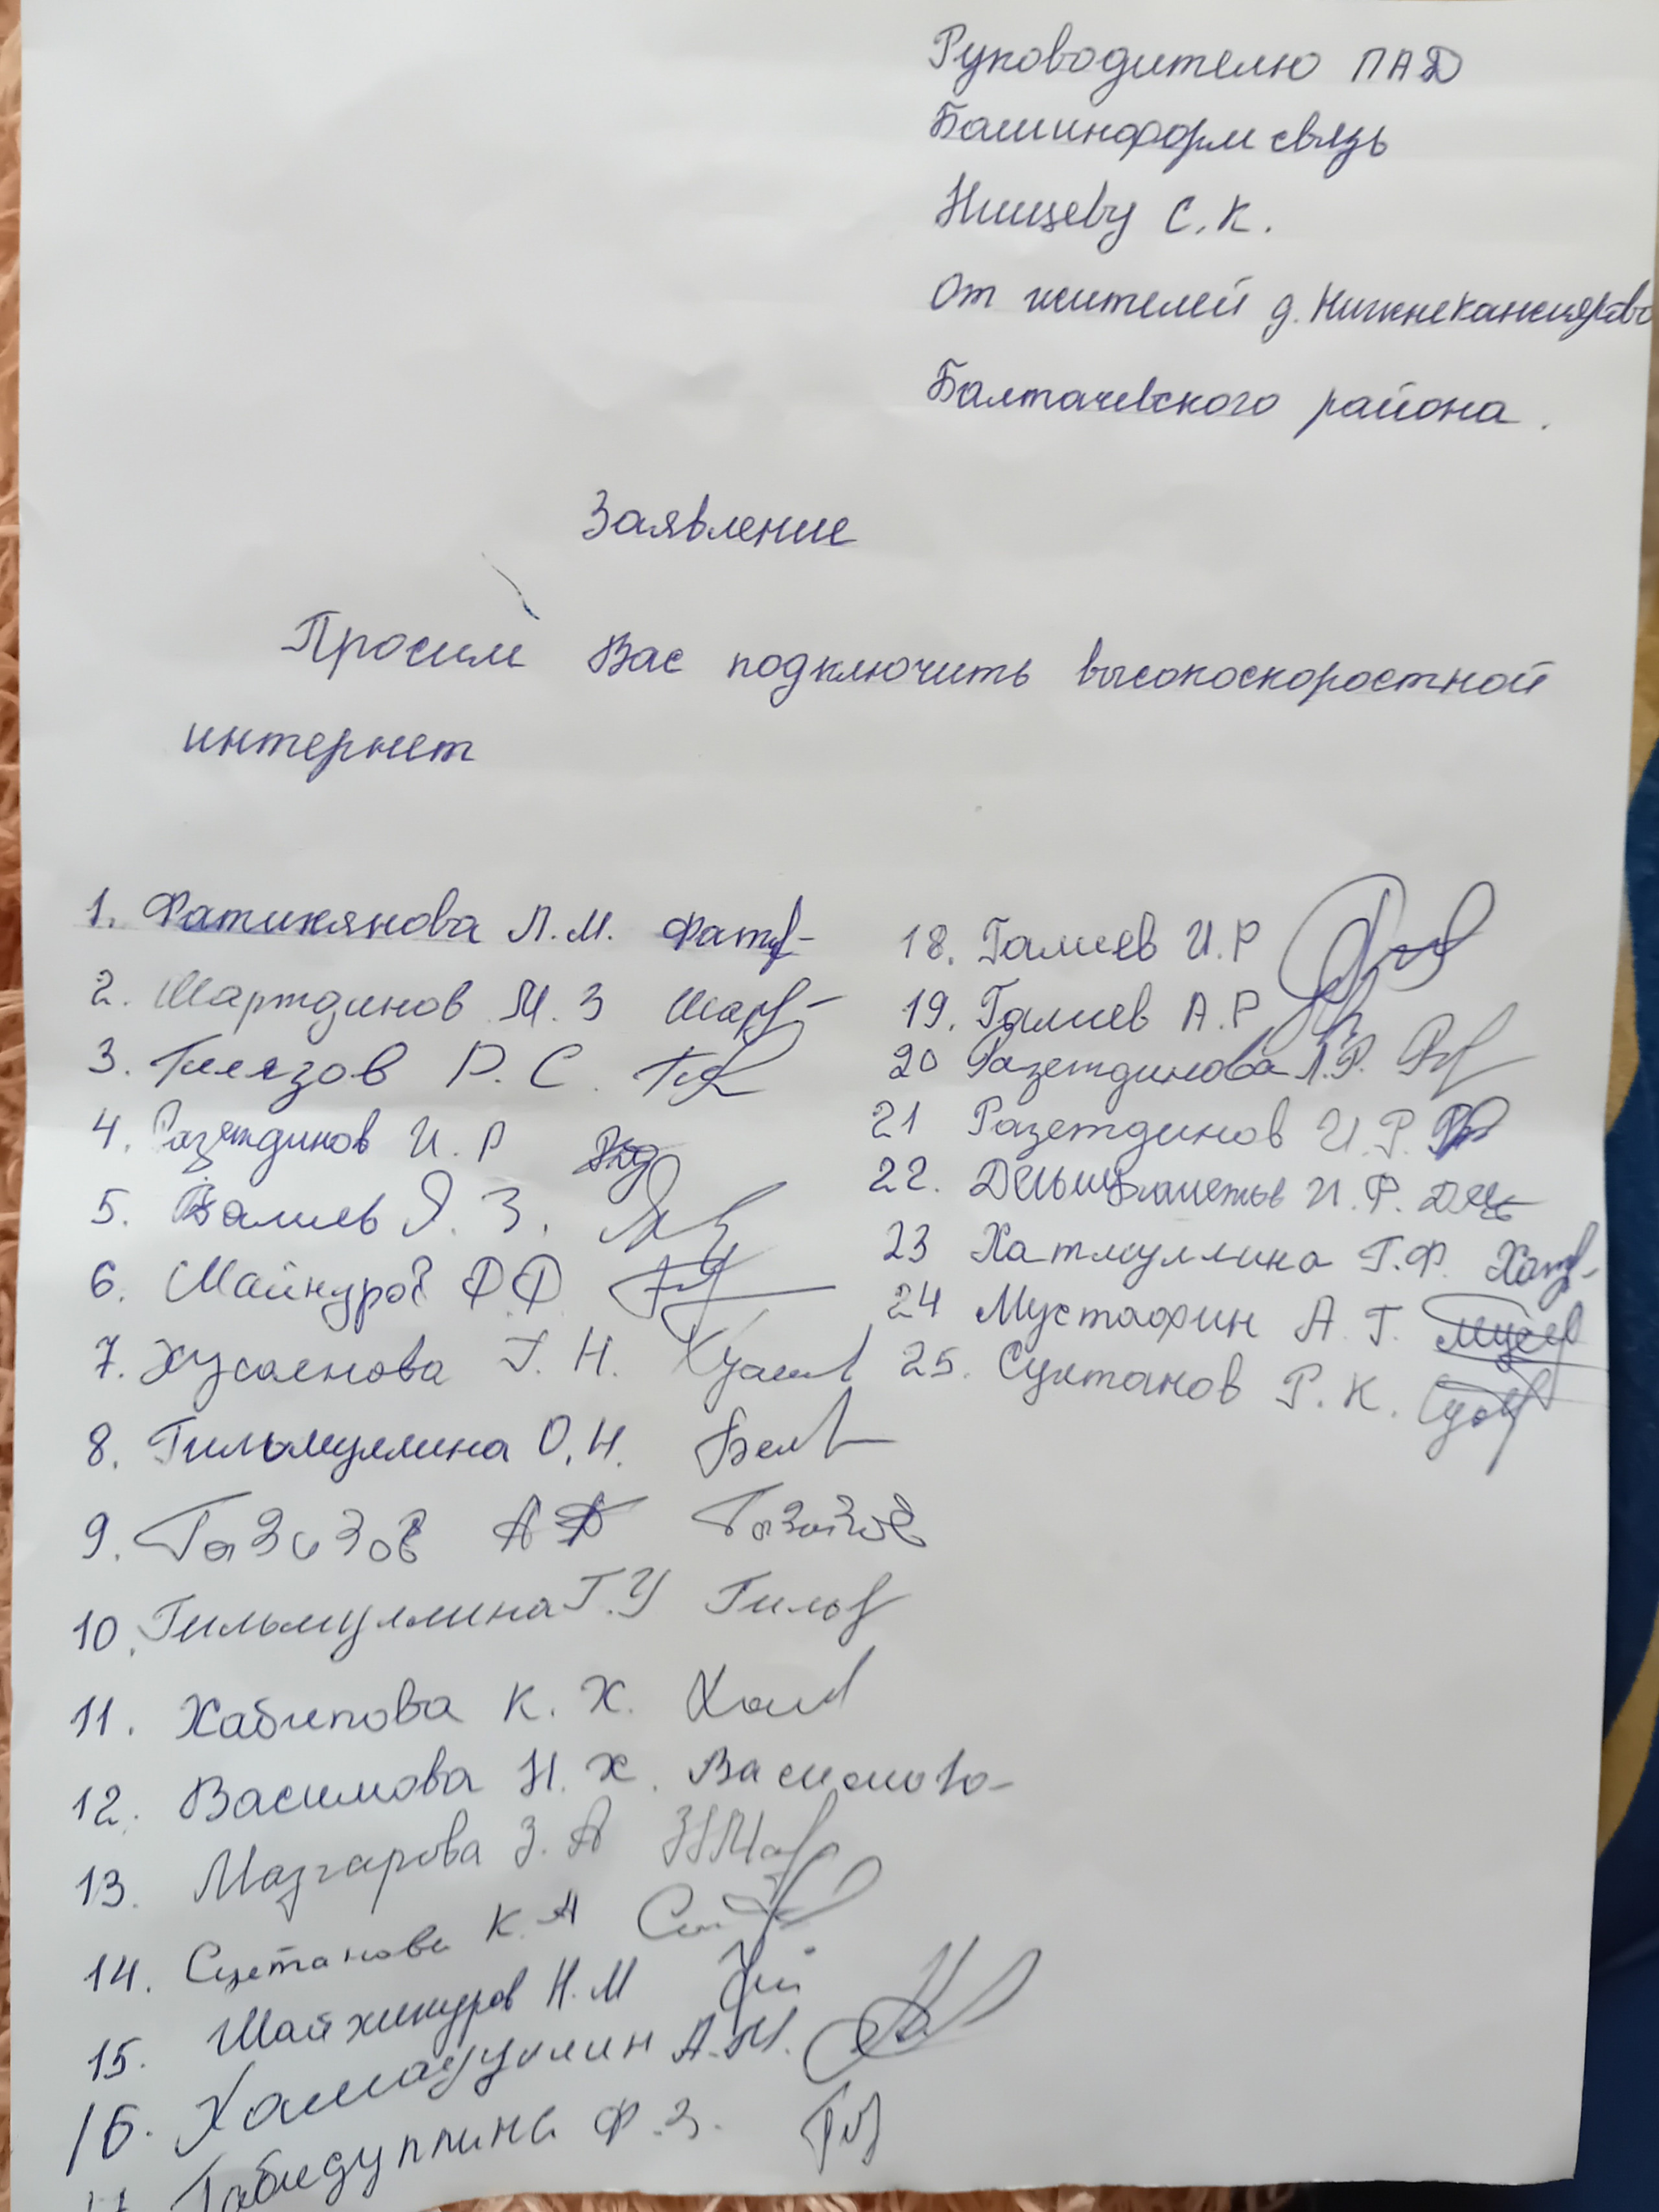 Руководителю ПАД
Башинформсвязь
Нищеву С.К.
От жителей д. Нижнекансиярово
Балтачевского района.
Заявление
Просим Вас подключить высокоскоростной
интернет
1. Фатикянова Л.М. Фат
2. Шартдинов М.З Шар
3. Гилязов Р.С.
4. Разетдинов И.Р
5. Валиев Я.З.
6. Майнуров Ф.Ф
7. Хусаенова Г.Н.
8. Гильмуллина О.Н.
9. Газизов А Газизов
10. Гильмуллина Г.У Гиль
11. Хабипова К.Х.
12. Васимова Н.Х. Васимова
13. Мазгарова З.А
14. Султанова К.А
15. Шайхинуров Н.М
16. А.М.
Габидуллина Ф.З.
18. Галиев И.Р
19. Галиев А.Р
20 Разетдинова Л.Р.
21 Разетдинов И.Р.
22. И.Ф.
23 Хатмуллина Г.Ф. Хат
24 Мустафин А.Г.
25. Султанов Р.К.